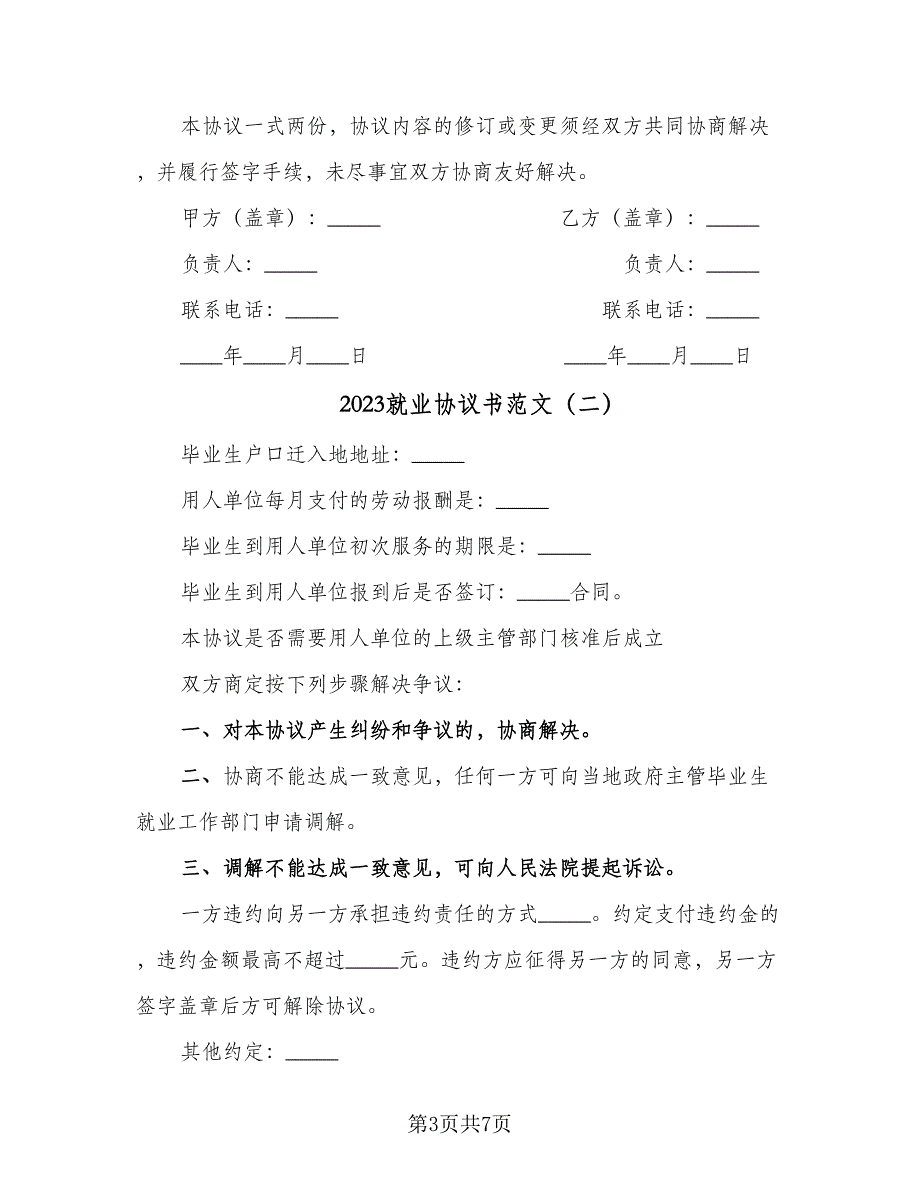 本协议一式两份，协议内容的修订或变更须经双方共同协商解决
，并履行签字手续，未尽事宜双方协商友好解决。
甲方（盖章）：_____ 乙方（盖章）：_____
负责人：_____ 负责人：_____
联系电话：_____ 联系电话：_____
____年____月____日 ____年____月____日
2023就业协议书范文（二）
毕业生户口迁入地地址：_____
用人单位每月支付的劳动报酬是：_____
毕业生到用人单位初次服务的期限是：_____
毕业生到用人单位报到后是否签订：_____合同。
本协议是否需要用人单位的上级主管部门核准后成立
双方商定按下列步骤解决争议：
一、对本协议产生纠纷和争议的，协商解决。
二、协商不能达成一致意见，任何一方可向当地政府主管毕业生
就业工作部门申请调解。
三、调解不能达成一致意见，可向人民法院提起诉讼。
一方违约向另一方承担违约责任的方式_____。约定支付违约金的
，违约金额最高不超过_____元。违约方应征得另一方的同意，另一方
签字盖章后方可解除协议。
其他约定：_____
第3页共7页